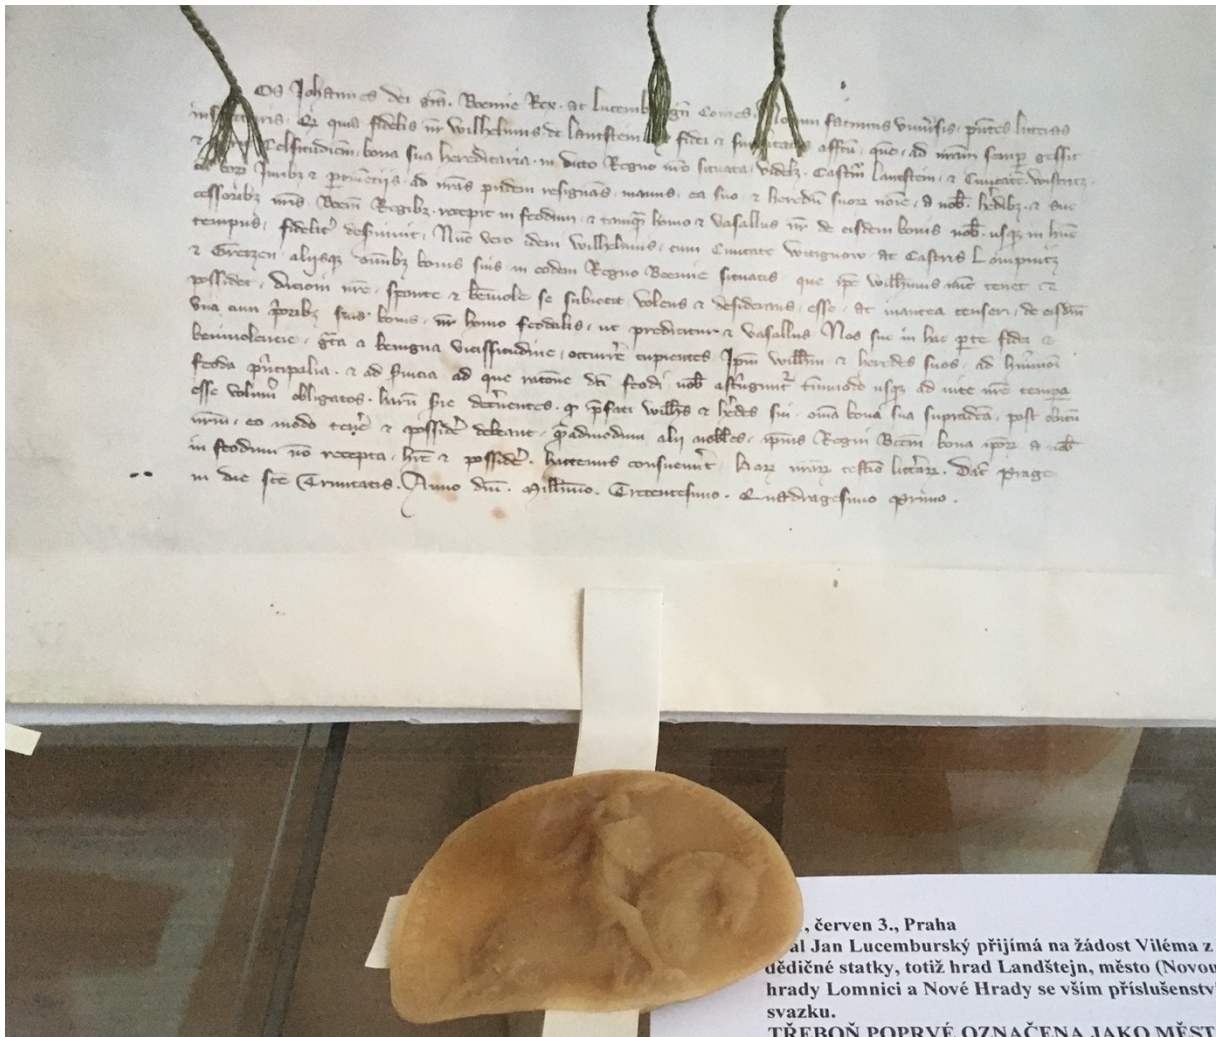 Os Johannes dei gr̄a. Boemie Rex. ac Lucemb Comes. facimus vniu̾sis. pn̄tes litteras
Qr̄ quia fidelis nr̄ Wilhelmus de Lantstein fidei et affc̄u. que. ad nr̄am semp̱ gessit
Celsitudinē. bona sua hereditaria. in dicto Regno nr̄o situata. videlz. Castrū Lantstein. et Ciuitatē
Juribz et ꝑtinētijs. ad nr̄as pridem resignās. manus. ea suo. et heredū suorꝝ noīe. a nob̄. hr̄dibz. et suc
cessoribz nr̄is. Boem̄ Regibz. recepit in feodum. et tamqᷓ homo et vasallus nr̄ de eisdem bonis nob̄. usqꝫ in hūc
tempus. fidelit̾ deseruiuit. Nūc vero idem Wilhelmus. cum Ciuitate Witignow. ac Castris Lompnitz
et Gretzen. alijsqꝫ om̄ibz bonis suis. in eodem Regno Boemie situatis. que ip̄e Wilh̄mus nūc tenet et
possidet. dicioni nr̄e. sponte et b̄niuole se subiecit. volens et desiderans. esse. ac inantea censeri. de eisdē
vna cum p̾oribz suis bonis. nr̄ homo feodalis. ut predicitur et vasallus. Nos sue in hac ꝑte fidei et
beniuolencie. gr̄a a benigna vicissitudine. occurrē cupientes. Ip̄m Wilh̄m et heredes suos. ad hm̄oi
feoda p̾ncipalia. et ad s̾uicia ad que racōne dc̄i feodi. nob̄ astringunt̾ tm̄modo usqꝫ ad vite nr̄e tempa
esse volum̾ obligatos. harū s̾ie dec̾nentes. qꝫ p̄fati Wilh̄s et h̾des sui. om̄a bona sua supradc̄a. post obitū
nr̄um. eo modo ten̾e et possid̾e debeant. q̾admodum alij nobiles. ip̄ius Regni Boem̄. bona ip̄orꝝ a nob̄
in feodum nō recepta. hr̄e et possid̾e. hactenus consueu̾t. Harꝝ nr̄arꝝ testīo litt̾arꝝ. Dat̄ Prage
in die sc̄e Trinitatis. Anno dn̄i. Mill̄imo. Trecentesimo. Quadragesimo primo.
, červen 3., Praha
Jan Lucemburský přijímá na žádost Viléma z
dědičné statky, totiž hrad Landštejn, město (Novou
hrady Lomnici a Nové Hrady se vším příslušenstv
svazku.
TŘEBOŇ POPRVÉ OZNAČENA JAKO MĚST